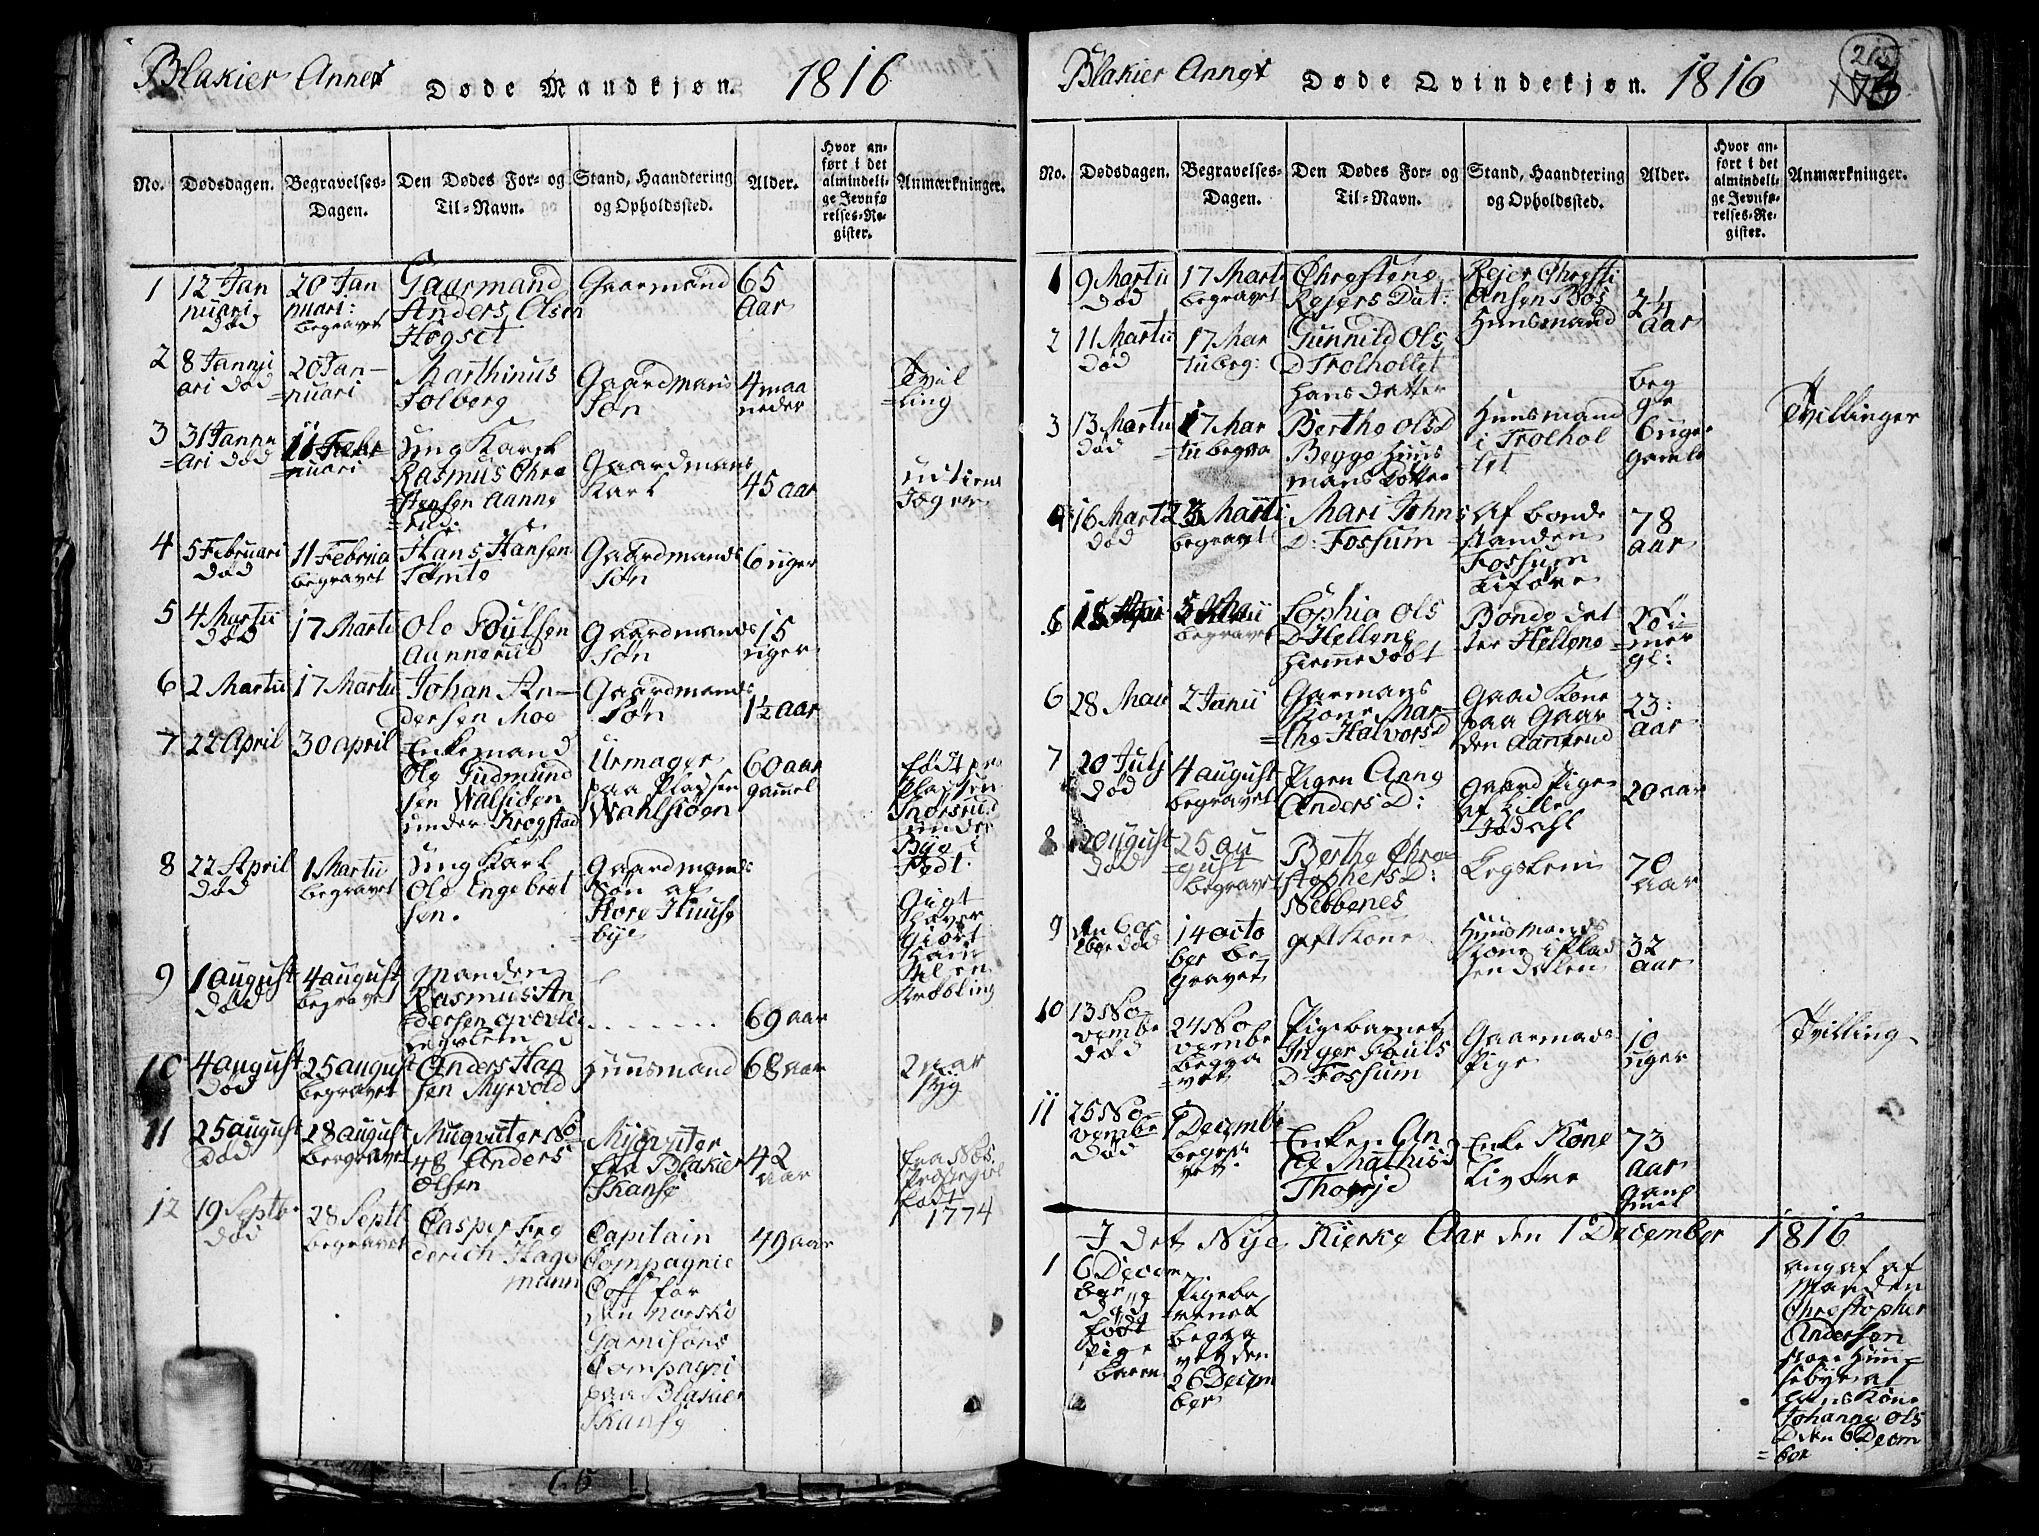 Blakier Annex
Døde Mandkjøn.
1816
No.
Dødsdagen.
Begravelses-
Dagen.
Den Dødes For- og
Til-Navn.
Stand, Haandtering
og Opholdssted.
Alder.
Hvor an-
ført i det
almindeli-
ge Jevnfø-
relses-Re-
gister.
Anmærkninger.
1
12 Jan
nuari
død
20 Jan
nuari:
begravet
Gaarmand
Anders Olsen
Høgset
Gaarmand
65
Aar
2
8 Janu
ari død
20 Jan-
=nuari
Marthinus
Solberg
Gaardmans
Søn
4 maa
neder
Tvil
=ling
3
31 Janu
=ari død
11 Febr
=nuari
Ung Karl
Rasmus Chri
=stensen Aanne
=rud.
Gaardmans
Karl
45 aar
Jæger
4
5 Februari
død
11 Februa
begravet
Hans Hansen
Tømte
Gaardmands
Søn
6 uger
5
4 Martii
død
17 Martii
Ole Poulsen
Aannerud
Gaardmands
Søn
15
uger
6
2 Martii
17 Martii
Johan An-
dersen Moe
Gaardmands
Søn
1½ aar
7
22 April
30 april
Enkemand
Ole Gudmund
sen Walsiøen
under Krogstad
Urmager
paa Pladsen
Wahlsiøen
60 aar
gammel
født paa
Pladsen
under
Bye i
Fedt.
8
22 April
død
1 Martii
begravet
Ung Karl
Ole Engebret
sen.
Gaardmands
Søn af
Store Huuse
=bye
Gigt
haver
giort
ham
til en
Krøbling
9
1 august
død
4 august
begravet
Manden
Rasmus An
dersen
Legslem
69 aar
10
4 august
død
25 august
begravet
Anders Han
sen Myrvold
Huusmand
68 aar
2 aar
syg
11
25 august
død
28 august
begravet
Musqviter No
48 Anders
Olsen
Mysqviter
fra Blakier
Skanse
42
aar
fra Næs
Præstegiel
født
1774
12
19 Septbr
død
28 Septb
begravet
Casper Fre
derich Hage
mann
Capitain
Compagnie
Coff for
den Norske
Garnisons
Compagni
paa Blakier
Skanse
49 aar
Blakier Anngx
Døde Qvindekjøn.
1816
215
No.
Dødsdagen.
Begravelses-
Dagen.
Den Dødes For- og
Til-Navn.
Stand, Haandtering
og Opholdssted.
Alder.
Hvor an-
ført i det
almindeli-
ge Jevnfø-
relses-Re-
gister.
Anmærkninger.
1
9 Martii
død
17 Marti
begravet
Christene
Rejers Dat:
Rejer Christi
ansen Bøs
Huusmand
24
aar
2
11 Martii
død
17 Mar
tii beg:
Gunnild Ols
D Trolhollet
hans datter
3
13 Martii
død
17 Mar
=tii begra
Berthe Ols D
Begge Huus
mans Døttre
Huusmand
i Trolhol
=let
beg
ge
6 uger
gamle
Tvillinger
4
16 Martii
død
23 Martii
begravet
Mari Johns
D: Fossum
Af bonde
standen
Fossum
Liføre
78
aar
begravet
Sophia Ols
D Hellene
hiemmedøbt
Bonde dat
ter Hellene
6
28 Maii
2 Junii
Gaarmans
Kone Mar-
=the Halvors D
Gaad Kone
paa Gaar
den Aanerud
23:
aar
7
20 Julj
død
4 august
begravet
Pigen Anne
Anders D:
Gaard Pige
af Lille
Jødahl
20 aar
8
død
25 au
=gust
begravet
Berthe Chri
stophers D:
Nebbenes
Legslem
70
aar
9
14 octo
ber be
gravet
gift Kone
Huusmands
Kone i Plad
sen Dalen
32
aar
10
13 No
vembe
død
24 No
vembe
begra
=vet
Pigebarnet
Inger Pouls
D Fossum
Gaarmans
Pige
10
uger
Tvilling
11
25 No
vembe
død
1 Decembe
begra
vet
Enken An
ne Mathis D
Thorje
Enke Kone
Livøre
73
aar
gam
mel
I det Nye Kierke Aar den 1 December 1816
1
6 Decem
ber
død
født
Pige
barn
Pigeba
rnet
begra
vet den
26 Decem
ber
Manden
Christopher
Andersen
store Huu
sebye
hans Kone
Johanne Ols
D den 6 Decem
=ber